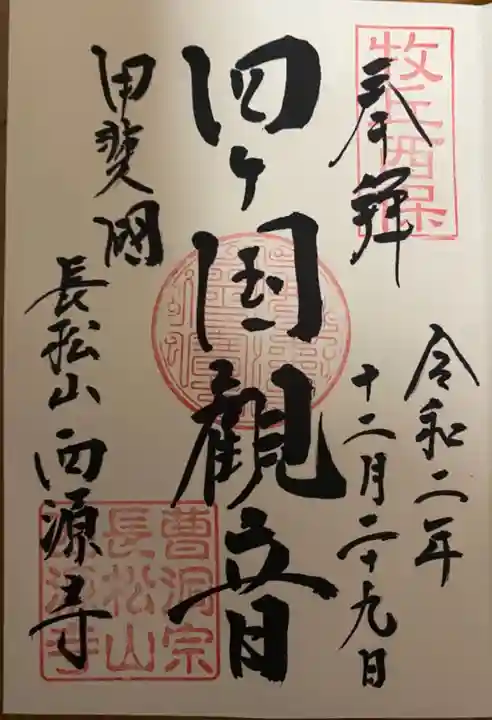 牧丘西保
奉拝
令和二年
十二月二十九日
四ヶ国観音
甲斐國
長松山 西源寺
曹洞宗
長松山
西源寺